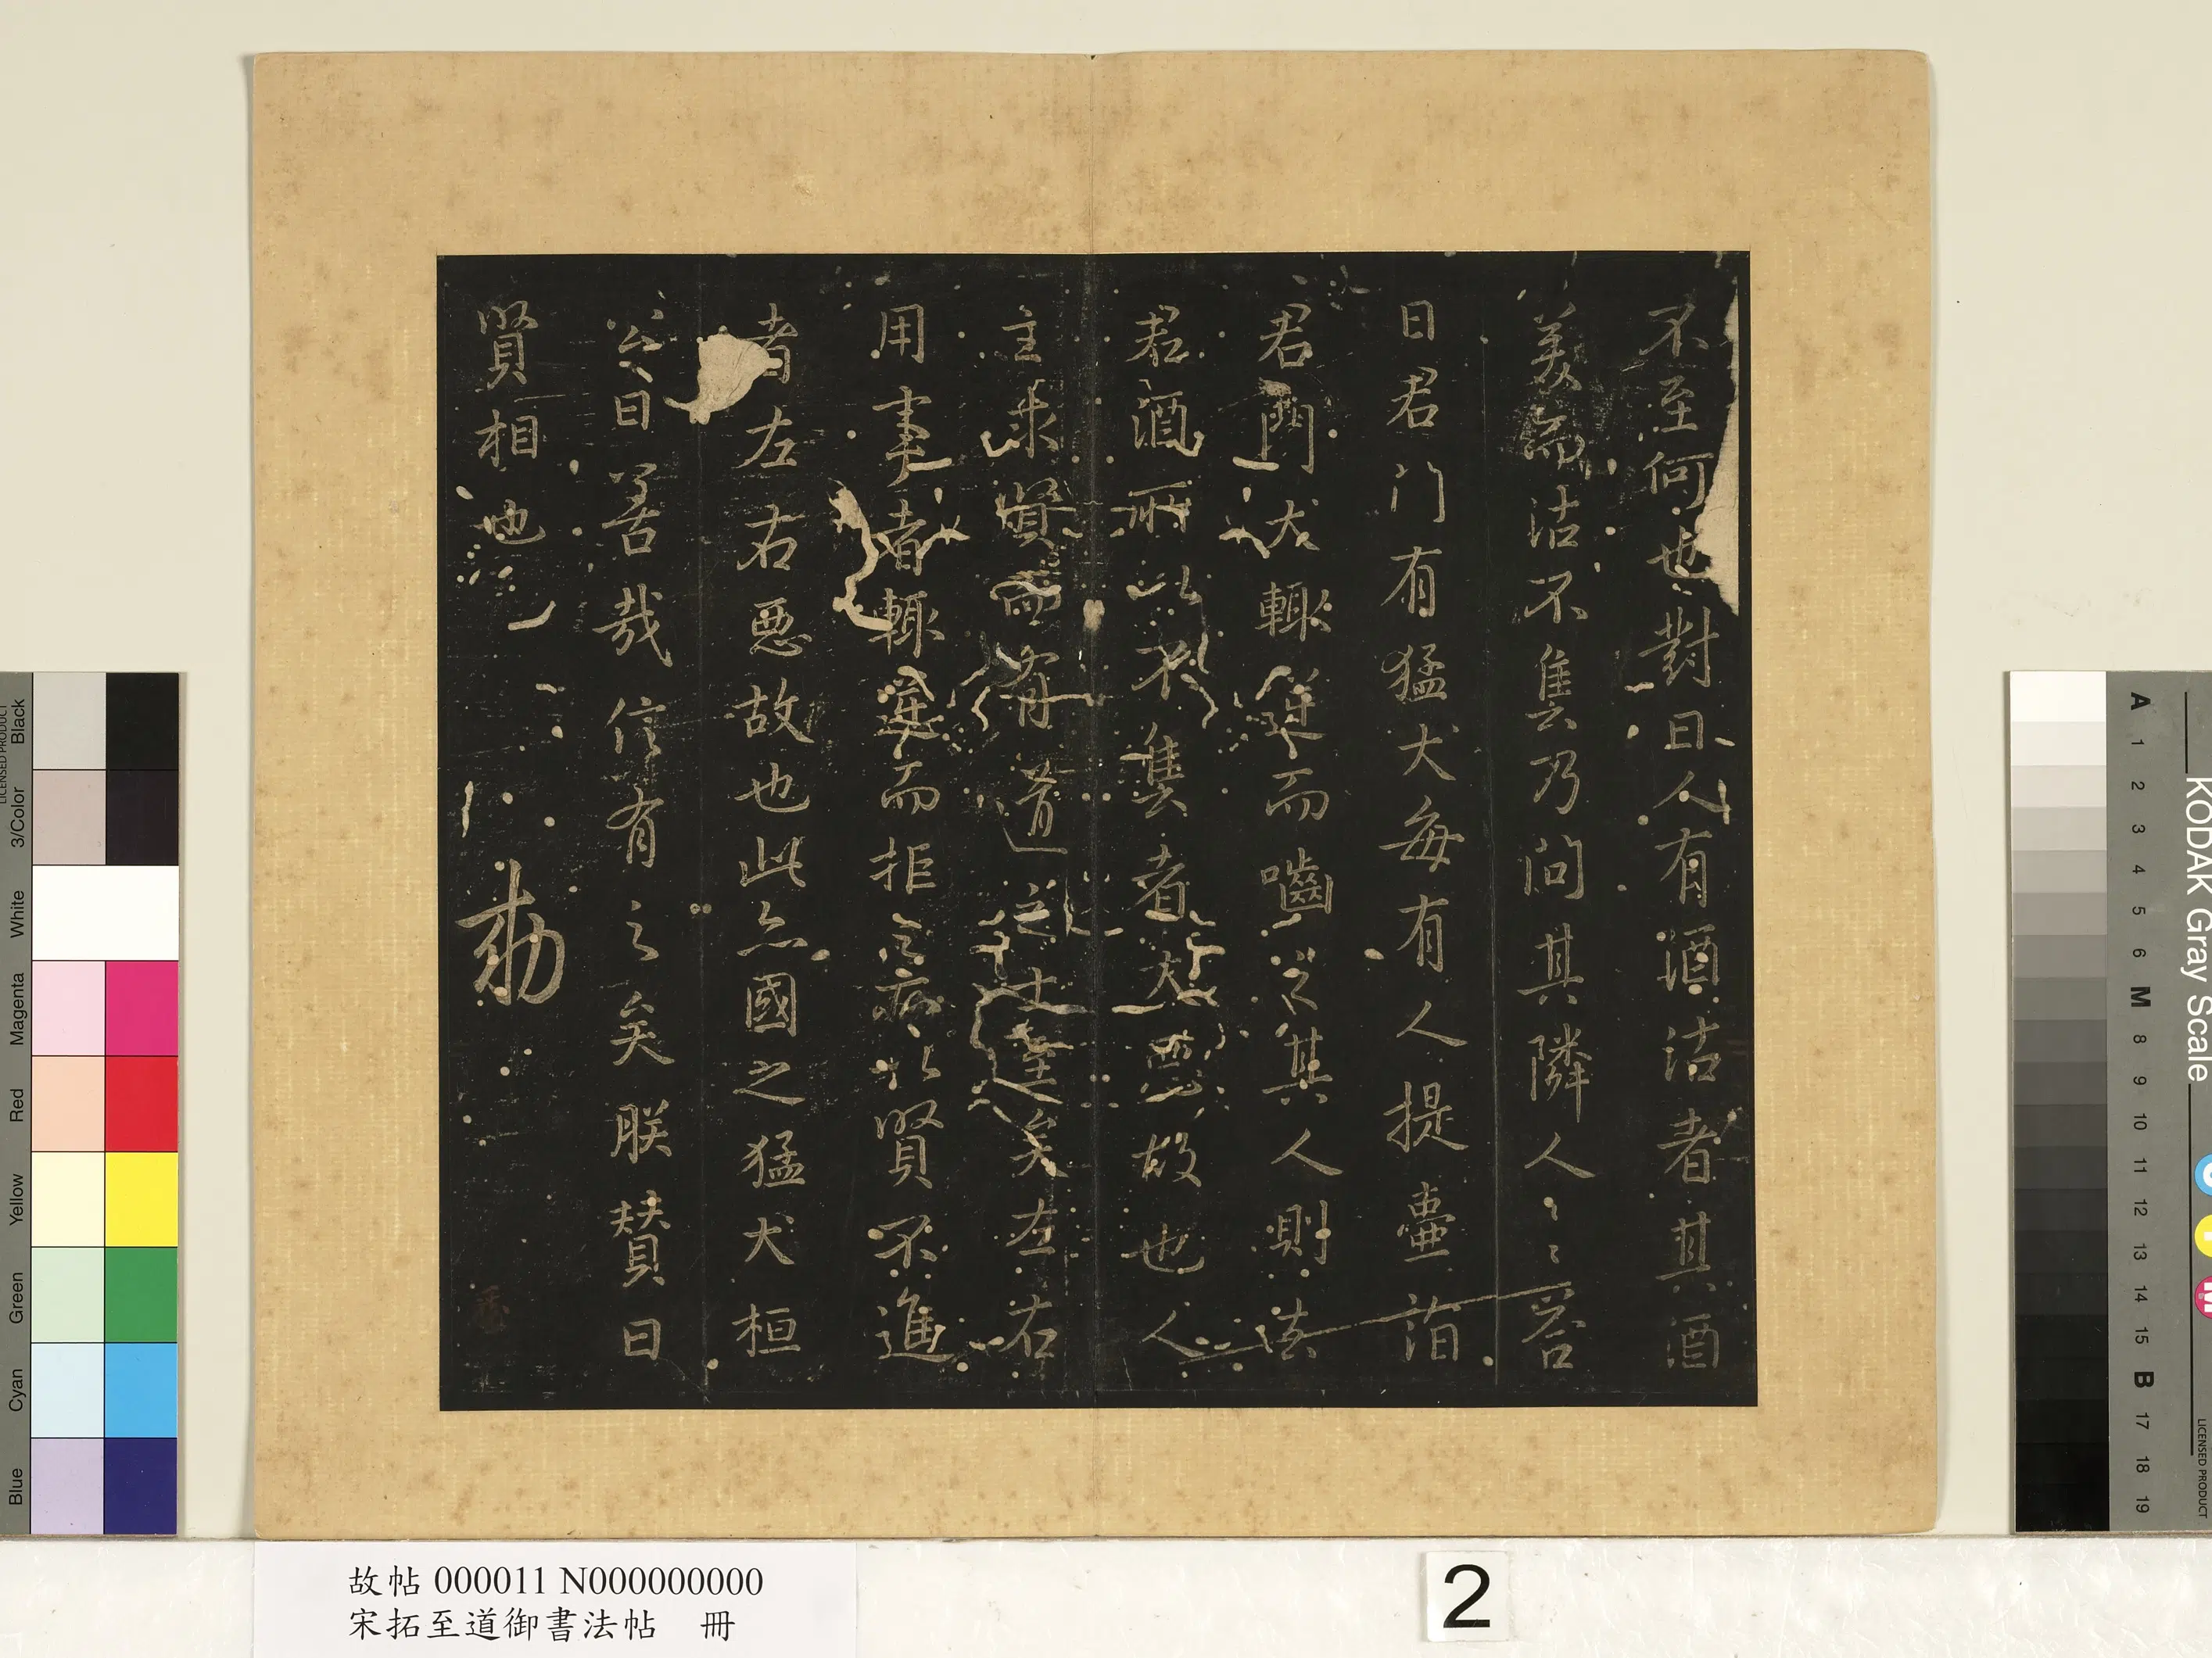 不至何也對曰人有酒沽者其酒
美而沽不售乃問其隣人〻〻答
曰君门有猛犬每有人提壷詣
君門犬輙逆而嚙之其人則
君酒所以不售者犬惡故也人
主求賢而道之士達矣左右
用事者輙逆而拒之病以賢不進
者左右惡故也此亦國之猛犬桓
公曰善哉信有之矣朕賛曰
賢相也
勅
故帖 000011 N000000000
宋拓至道御書法帖 冊
2
Black
3/Color
White
Magenta
Red
Yellow
Green
Cyan
Blue
LICENSED PRODUCT
KODAK Gray Scale
A 1 2 3 4 5 6 M 8 9 10 11 12 13 14 15 B 17 18 19
LICENSED PRODUCT